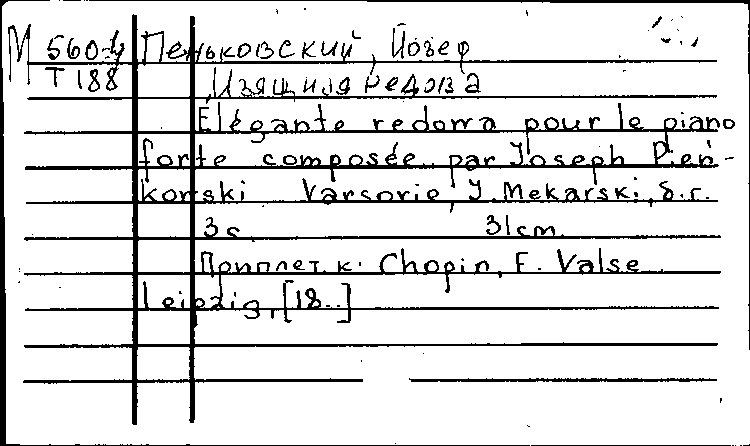 М 560-4 Пеньковский, Йозеф
Т 188 Изящная редова
Élégante redowa pour le piano
forte composée par Joseph Pień-
kowski Varsovie, J. Mekarski, s.r.
3 с. 31 cm.
Приплет. к: Chopin, F. Valse
Leipzig, [18..]